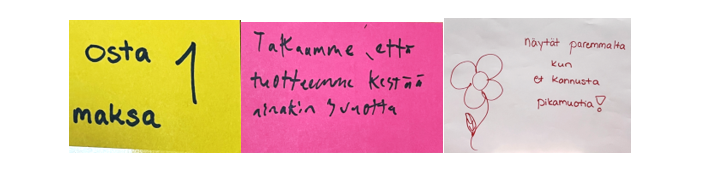 osta 1
maksa
Takaamme, että
tuotteemme kestää
ainakin 3 vuotta
näytät paremmalta
kun
et kannusta
pikamuotia!